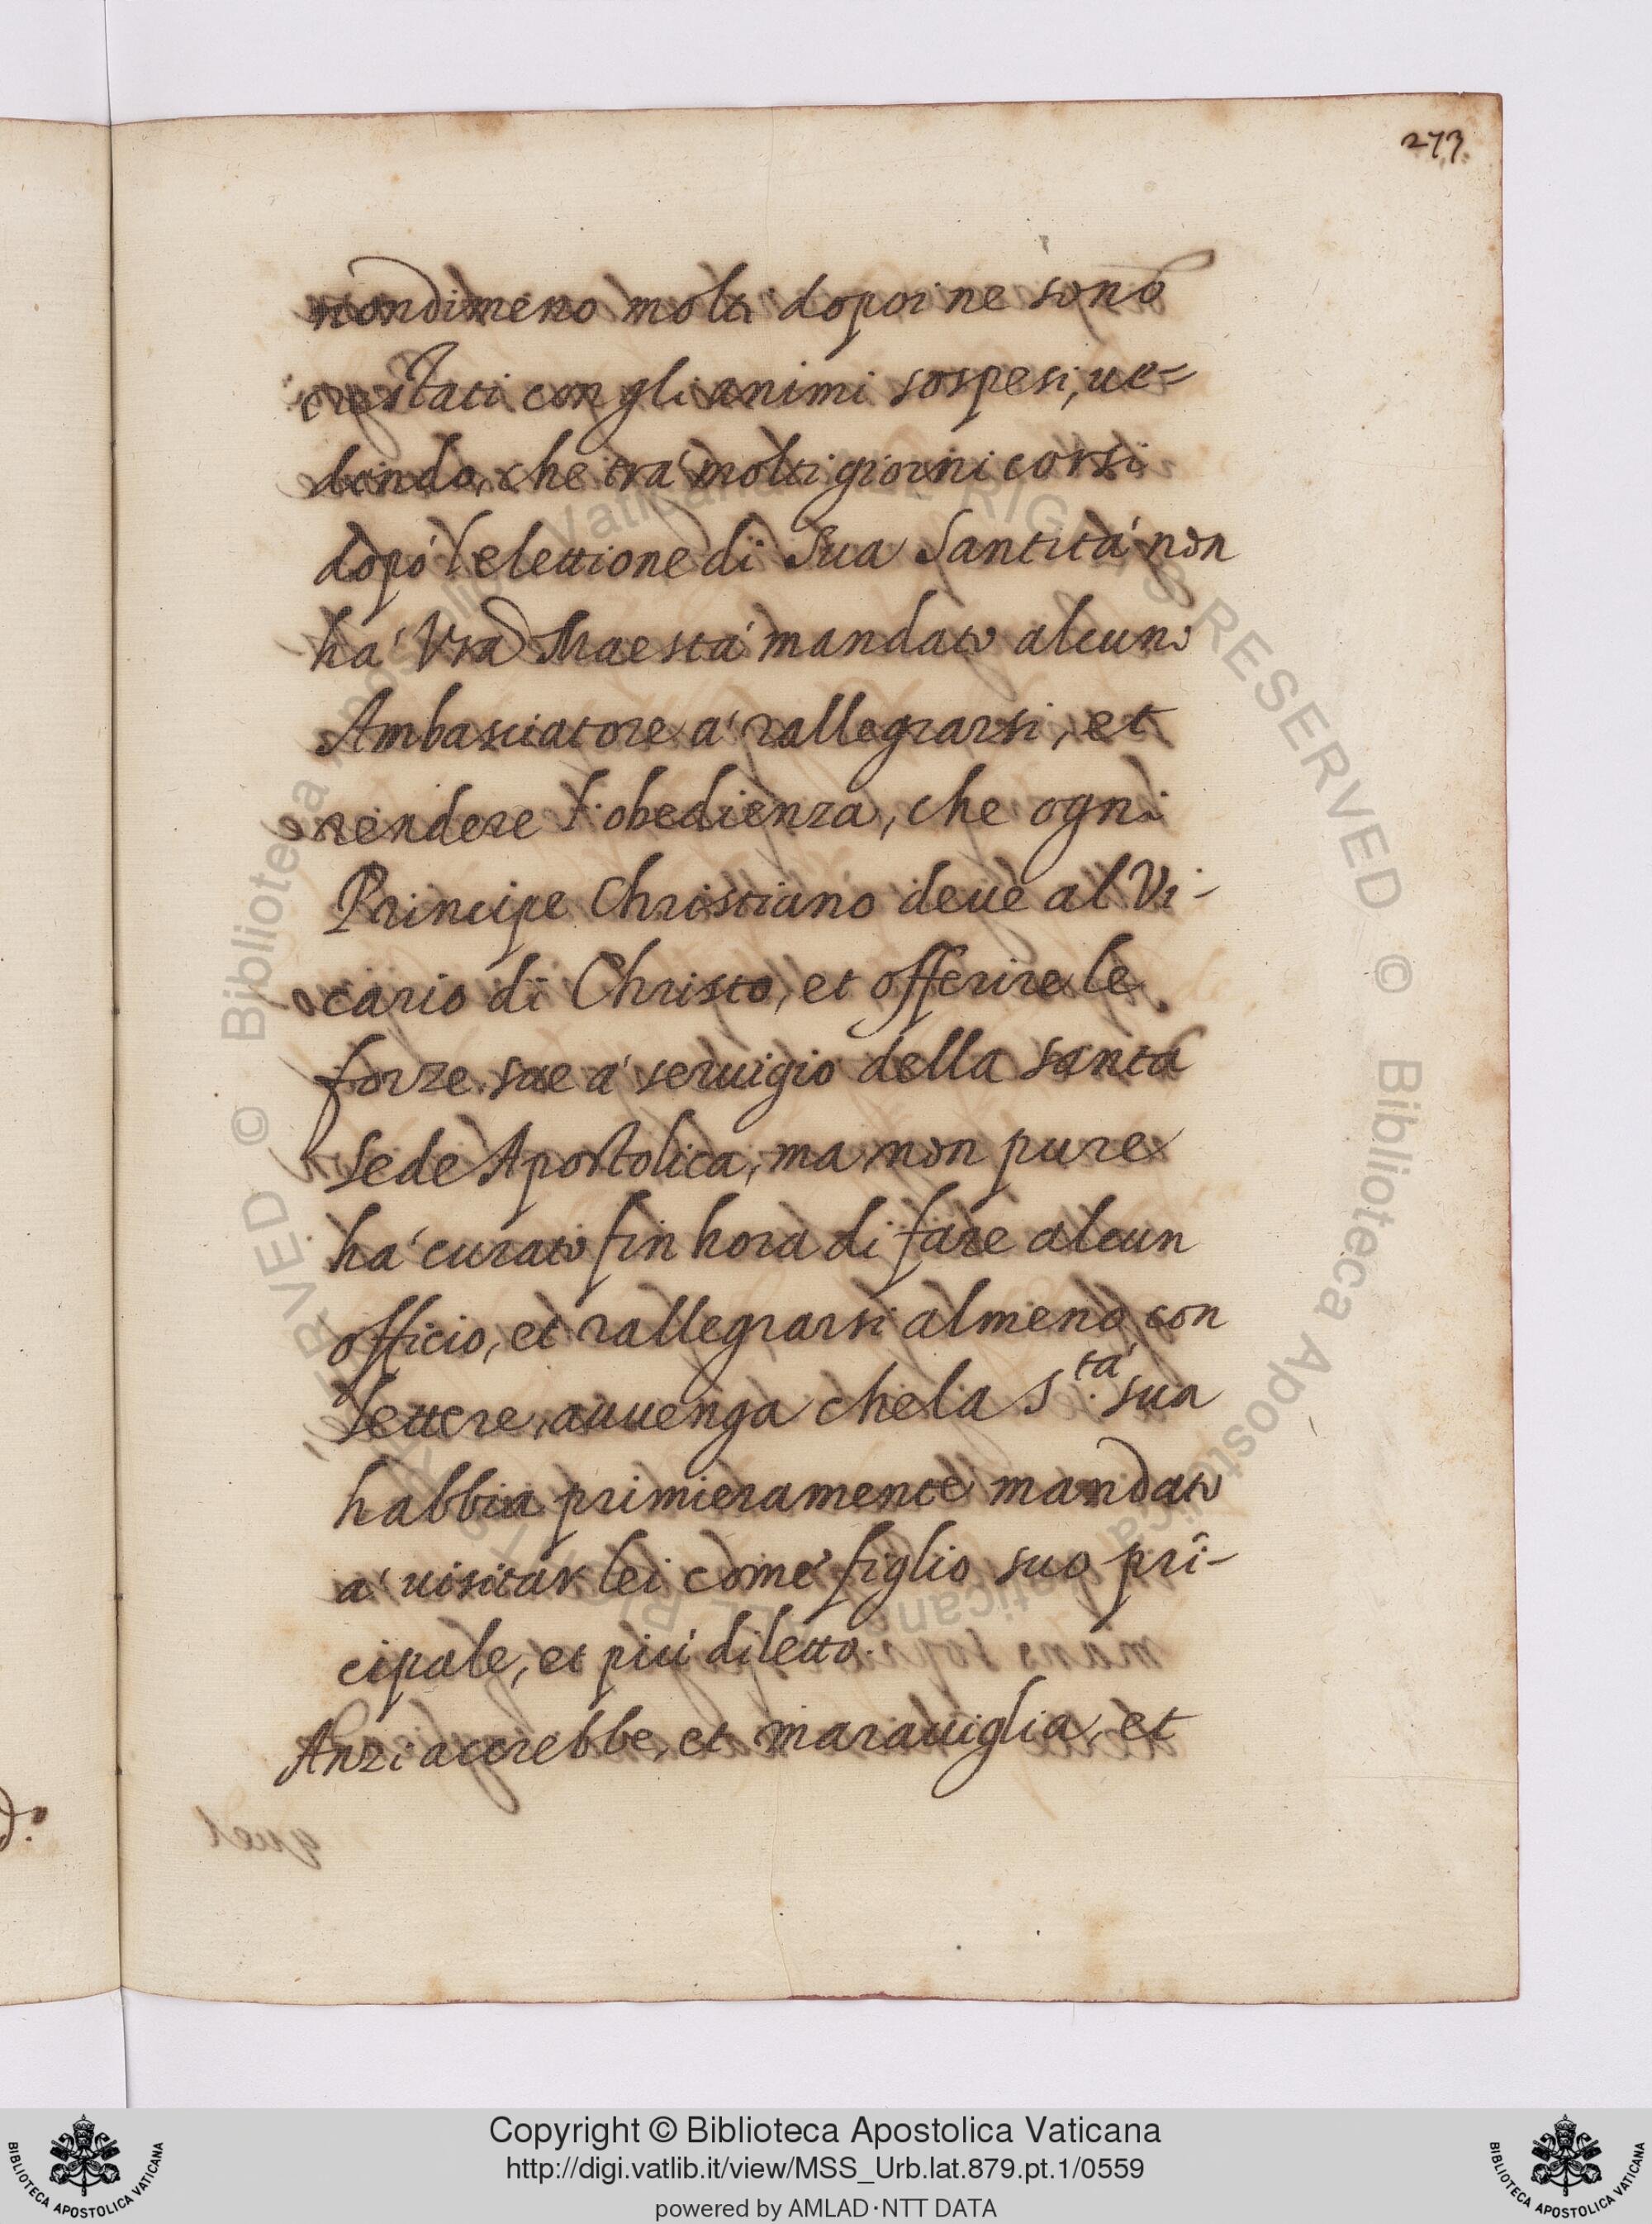 273.
nondimeno molti dopoi ne sono
restati con gli animi sospesi, ue=
dendo, che tra' molti giorni corsi
dopo' l'elettione di Sua Santita' non
ha' Vra Maesta' mandato alcuno
Ambasciatore a' rallegrarsi, et
rendere l'obedienza, che ogni
Principe Christiano deue al Vi-
cario di Christo, et offerire le
forze sue a' seruigio della santa
Sede Apostolica, ma non pure
ha' curato fin hora di fare alcun
officio, et rallegrarsi almeno con
lettere, auuenga che la S.tá sua
habbia primieramente mandato
a' uisitar lei come figlio suo prī-
cipale, et piú diletto.
Anzi accrebbe, et marauiglia, et
Copyright © Biblioteca Apostolica Vaticana
http://digi.vatlib.it/view/MSS_Urb.lat.879.pt.1/0559
powered by AMLAD·NTT DATA
BIBLIOTECA APOSTOLICA VATICANA
BIBLIOTECA APOSTOLICA VATICANA